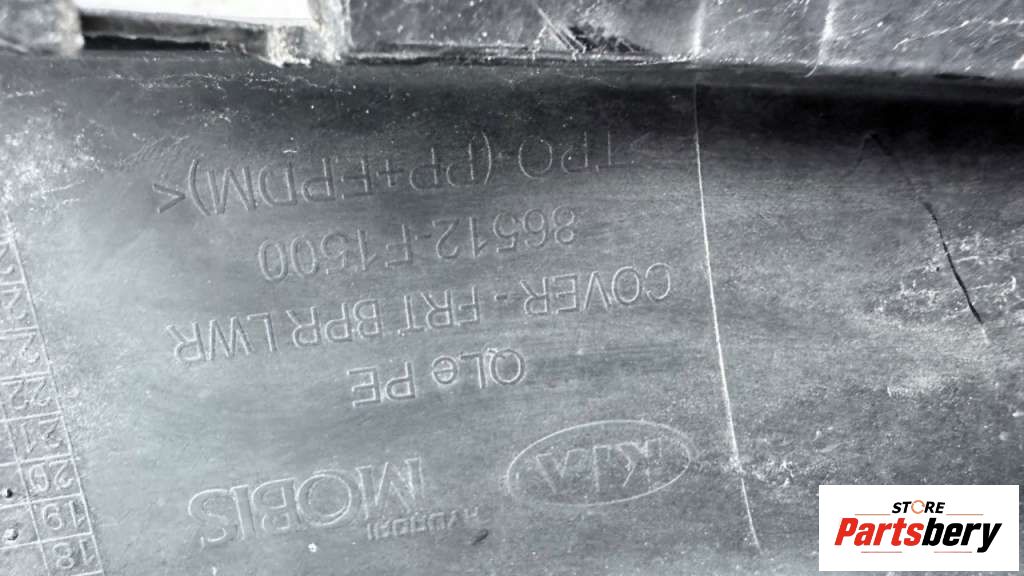 KIA
HYUNDAI
MOBIS
QLe PE
COVER - FRT BPR LWR
86512-F1500
>TPO (PP+EPDM)<
18
19
20
21
22
STORE
Partsbery